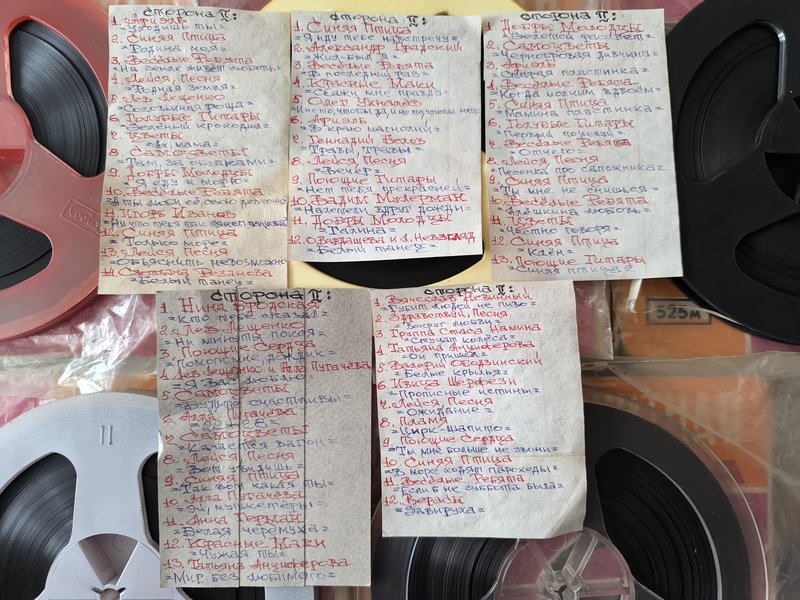 сторона II:
1. Ариэль
=Уходишь ты=
2. Синяя Птица
=Родина моя=
3. Весёлые Ребята
=На земле живёт любовь=
4. Лейся, Песня
=Родная земля=
5. Лев Лещенко
=Соловьиная роща=
6. Голубые Гитары
=Зелёный крокодил=
7. Цветы
=Ах, мама=
8. Самоцветы
=Там, за облаками=
9. Добры Молодцы
=Я еду к морю=
10. Весёлые Ребята
=А ты люби её, свою девчонку
11. Игорь Иванов
12. Синяя Птица
=Только море=
13. Лейся Песня
=Объяснить невозможно
14. Светлана Резанова
=Белый танец=
сторона II:
1. Синяя Птица
=Я иду тебе навстречу=
2. Александр Градский
=Жил-был я=
3. Весёлые Ребята
=В последний раз=
4. Красные Маки
=Скажи мне правду=
5. Олег Ухналёв
6. Ариэль
=В краю магнолий=
7. Геннадий Белов
=Травы, травы=
8. Лейся Песня
=Вечер=
9. Поющие Гитары
=Нет тебя прекрасней=
10. Вадим Мулерман
=Налетели вдруг дожди=
11. Добры Молодцы
=Галина=
12. Вардашева и Л. Невзгляд
=Белый танец=
сторона II:
1. Добры Молодцы
=Золотой рассвет=
2. Самоцветы
=Чернобровая дивчина=
3. Ариэль
=Старая пластинка=
4. Весёлые Ребята
=Когда молчим вдвоём=
5. Синяя Птица
=Мамина пластинка=
6. Голубые Гитары
=Первый поцелуй=
7. Весёлые Ребята
=Отчего=
8. Лейся Песня
=Песенка про сапожника=
9. Синяя Птица
=Ты мне не снишься=
10. Весёлые Ребята
=Алёшкина любовь=
11. Цветы
=Честно говоря=
12. Синяя Птица
=Клён=
13. Поющие Гитары
=Синяя птица=
сторона II:
1. Нина Бродская
=Кто тебе сказал=
2. Лев Лещенко
=Ни минуты покоя=
3. Поющие Сердца
=Помоги мне, дождик=
4. Лев Лещенко и Алла Пугачёва
=Я Вас люблю=
5. Самоцветы
=Будьте счастливы=
6. Алла Пугачёва
7. Самоцветы
=Качается вагон=
8. Лейся Песня
=Вот увидишь=
9. Синяя Птица
=Так вот какая ты=
10. Алла Пугачёва
=Эй, мушкетёры=
11. Анна Герман
=Белая черёмуха=
12. Красные Маки
=Чужая ты=
13. Татьяна Анциферова
=Мир без любимого=
сторона II:
1. Вячеслав Невинный
=Губит людей не пиво=
2. Здравствуй, Песня
=Вокруг любви=
3. Группа Стаса Намина
=Стучат колёса=
4. Татьяна Анциферова
=Он пришёл=
5. Валерий Ободзинский
=Белые крылья=
6. Ивица Шерфези
=Прописные истины=
7. Лейся, Песня
=Ожидание=
8. Пламя
=Цирк-шапито=
9. Поющие Сердца
=Ты мне больше не звони=
10. Синяя Птица
=В море ходят пароходы=
11. Весёлые Ребята
=Если б не суббота была=
12. Верасы
=Завируха=
525м
11